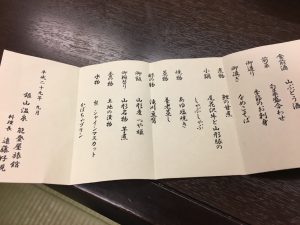 食前酒 山ぶどう酒
前菜 旬菜盛合わせ
御造り 季節のお刺身
御凌ぎ なめこそば
煮物 鯉の甘煮
小鍋 尾花沢牛と山形豚の
しゃぶしゃぶ
焼物 あゆ塩焼き
蒸物 茶碗蒸し
酢の物 滝川豆腐
御飯 山形産つや姫
御椀替り 山形名物 芋煮
香の物 土地の漬物
水物 梨 シャインマスカット
かぼちゃプリン
平成二十九年 九月
銀山温泉 能登屋旅館
料理長 遠藤